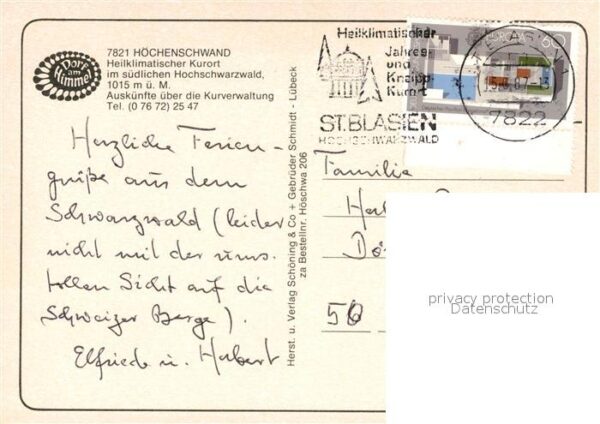 Dorf
am
Himmel
7821 HÖCHENSCHWAND
Heilklimatischer Kurort
im südlichen Hochschwarzwald,
1015 m ü. M.
Auskünfte über die Kurverwaltung
Tel. (0 76 72) 25 47
Herzliche Ferien-
grüße aus dem
Schwarzwald (leider
nicht mit der
tollen Sicht auf die
Schweizer Berge).
Elfriede u. Herbert
Herst. u. Verlag Schöning & Co + Gebrüder Schmidt - Lübeck
za Bestellnr. Höschwa 206
Heilklimatischer
Jahres-
und
Kneipp-
Kurort
ST.BLASIEN
HOCHSCHWARZWALD
EUROPA
60
7822
Familie
56
privacy protection
Datenschutz